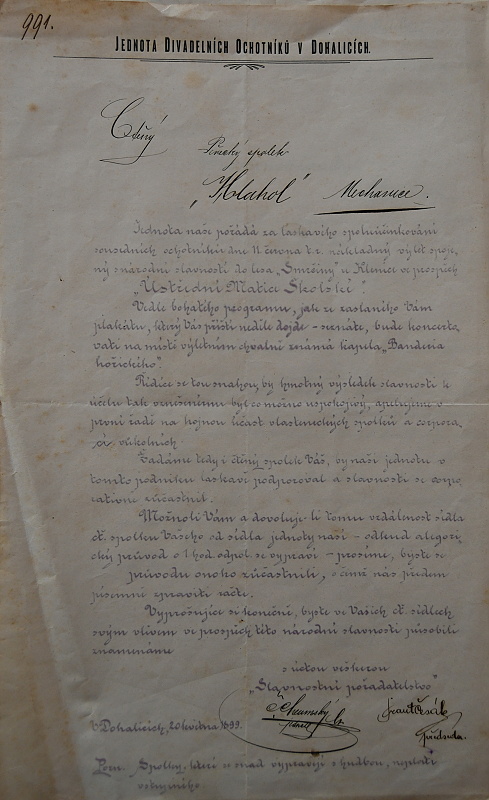 991.
JEDNOTA DIVADELNÍCH OCHOTNÍKŮ V DOHALICÍCH.
Ctěný
Pěvecký spolek
„Hlahol" Mechanice.
Jednota naše pořádá za laskavého spoluúčinkování
sousedních ochotníků dne 11. června t. r. nákladný výlet spoje-
ný s národní slavností do lesa „Smrčiny" u Klenice ve prospěch
„Ústřední Matice Školské".
Vedle bohatého programu, jak ze zaslaného Vám
plakátu, který Vás příští neděli dojde – seznáte, bude koncerto-
vati na místě výletním chvalně známá kapela „Banderia
hořického".
Řídíce se tou snahou, by hmotný výsledek slavnosti k
účelu tak vznešenému byl co možno uspokojivý, apelujeme v
první řadě na hojnou účast vlasteneckých spolků a corpora-
cí v okolních.
Žádáme tedy i ctěný spolek Váš, by naši jednotu v
tomto podniku laskavě podporoval a slavnosti se corpo-
rativně zúčastnil.
Možno-li Vám a dovoluje-li tomu vzdálenost sídla
ct. spolku Vašeho od sídla jednoty naší – odkud alegori-
cký průvod o 1 hod. odpol. se vypraví – prosíme, byste se
průvodu onoho zúčastnili, o čemž nás předem
písemně zpraviti račte.
Vyprošujíce si konečně, byste ve Vašich ct. sídlech
svým vlivem ve prospěch této národní slavnosti působili
znamenáme
s úctou veškerou
„Slavnostní pořadatelstvo"
V Dohalicích, 20 května 1899.
předseda.
Pozn. Spolky, které se snad vypraví s hudbou, neplatí
vstupného